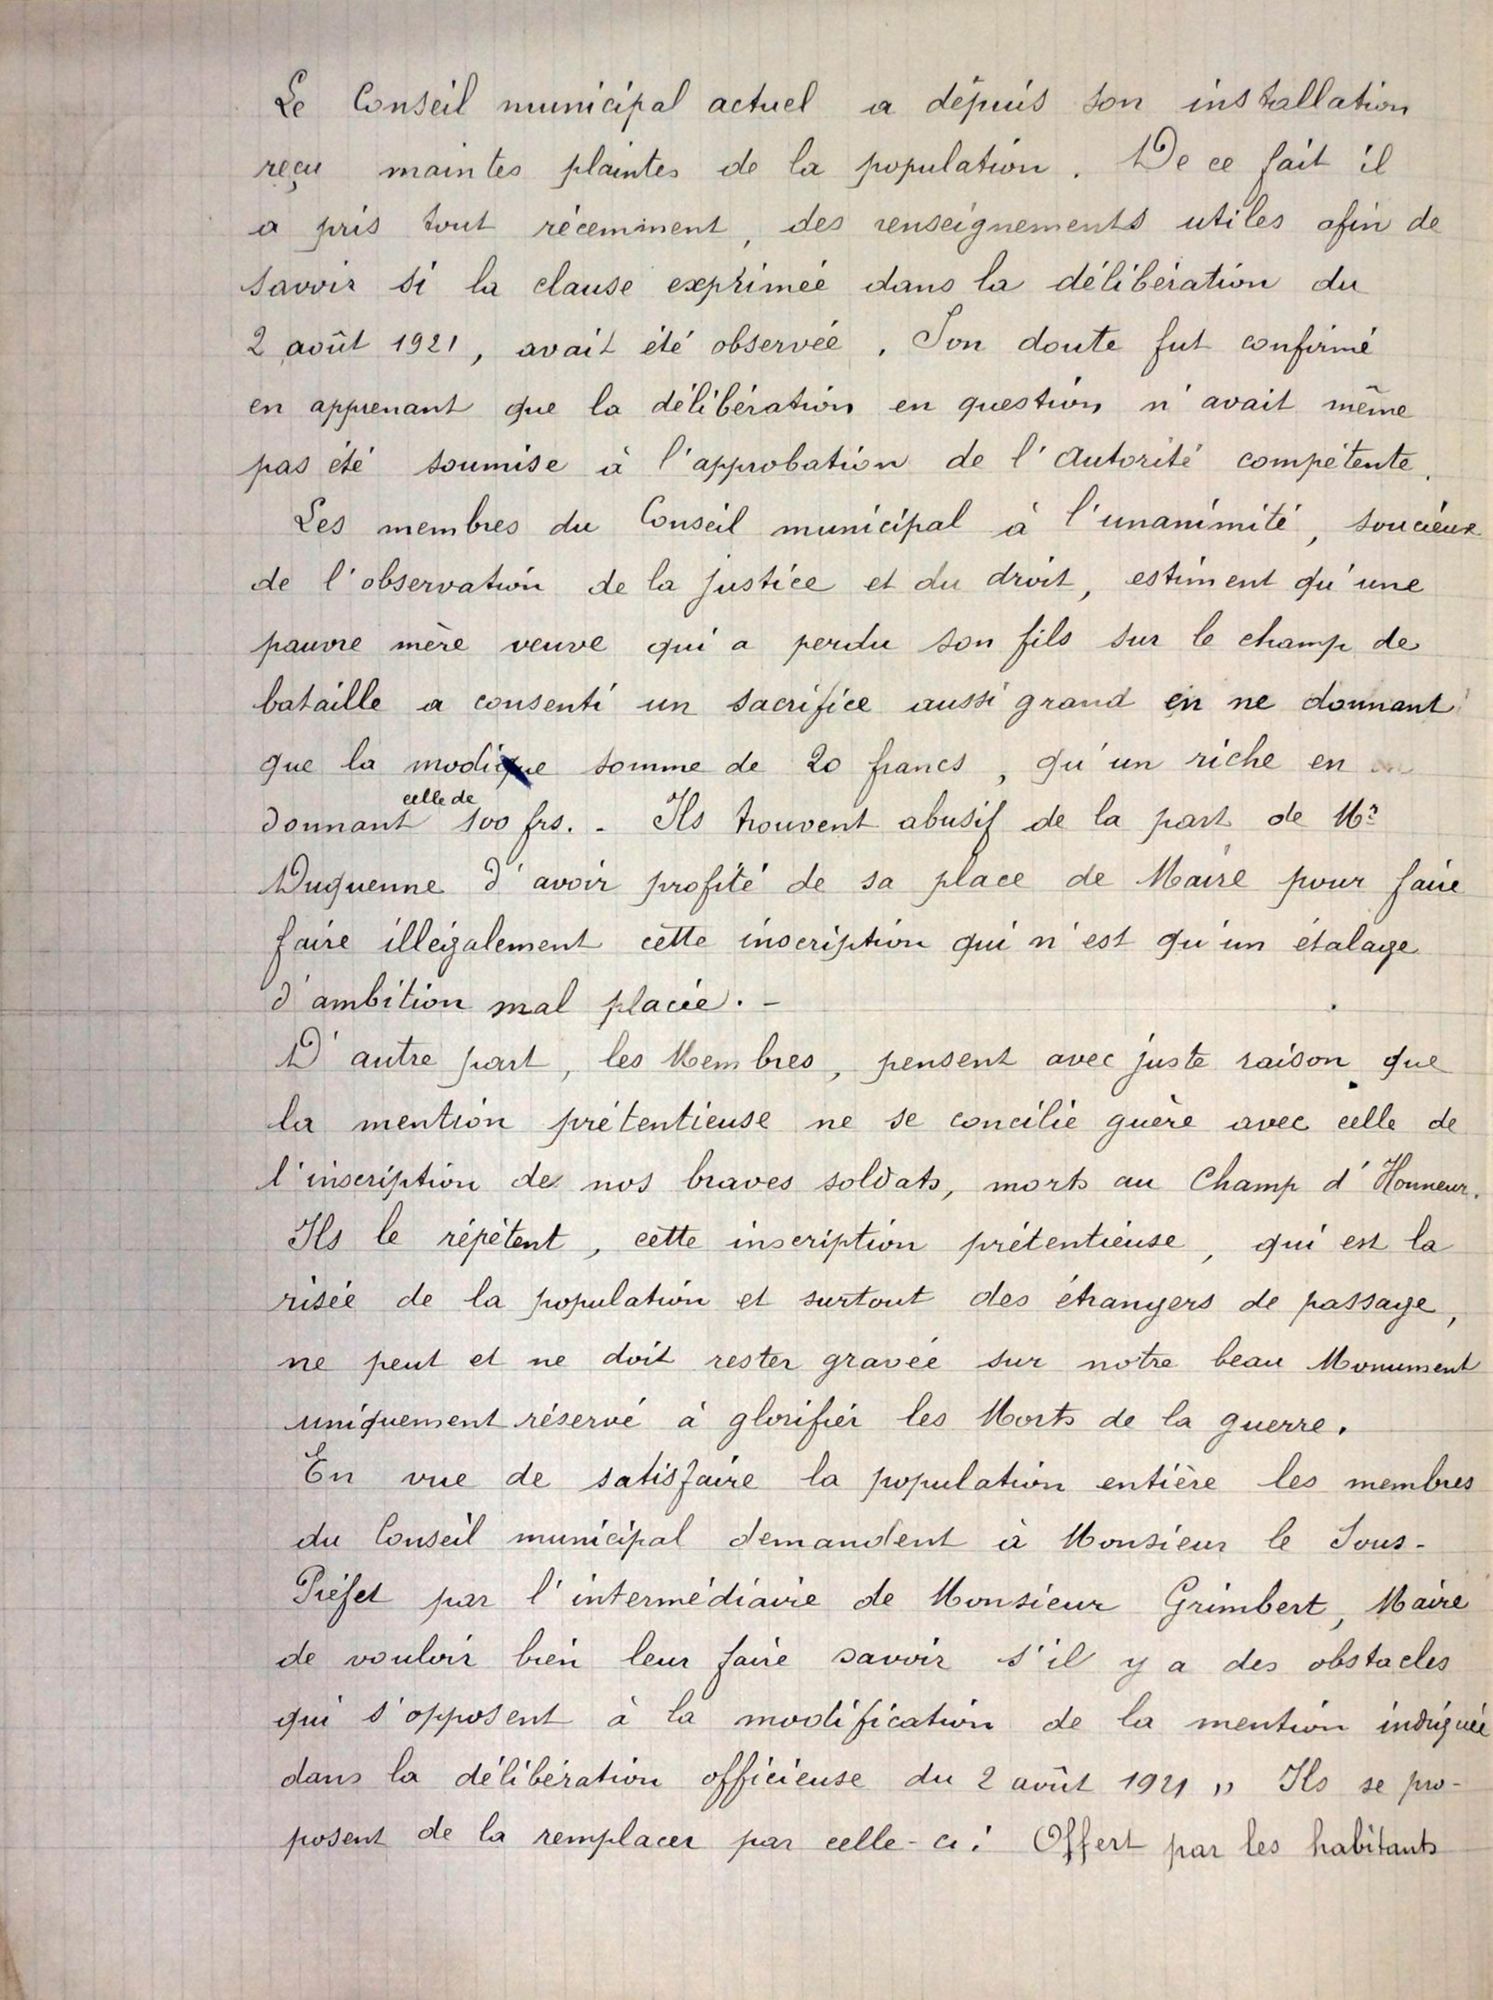 Le Conseil municipal actuel a dépuis son installation
reçu maintes plaintes de la population. De ce fait il
a pris tout récemment, des renseignements utiles afin de
savoir si la clause expriméé dans la délibération du
2 août 1921, avait été observéé. Son doute fut confirmé
en apprenant que la délibération en question n'avait même
pas été soumise à l'approbation de l'Autorité compétente.
Les membres du Conseil municipal à l'unanimité, soucieux
de l'observation de la justice et du droit, estiment qu'une
pauvre mère veuve qui a perdu son fils sur le champ de
bataille a consenti un sacrifice aussi grand en ne donnant
que la modique somme de 20 francs, qu'un riche en
celle de
donnant 100 frs. - Ils trouvent abusif de la part de Mr
Duquenne d'avoir profité de sa place de Maire pour faire
faire illégalement cette inscription qui n'est qu'un étalage
d'ambition mal placée. -
D'autre part, les Membres, pensent avec juste raison que
la mention prétentieuse ne se concilie guère avec celle de
l'inscription de nos braves soldats, morts au Champ d'Honneur.
Ils le répètent, cette inscription prétentieuse, qui est la
risée de la population et surtout des étrangers de passage,
ne peut et ne doit rester gravée sur notre beau Monument
uniquement réservé à glorifier les Morts de la guerre.
En vue de satisfaire la population entière les membres
du Conseil municipal demandent à Monsieur le Sous-
Préfet par l'intermédiaire de Monsieur Grimbert, Maire
de vouloir bien leur faire savoir s'il y a des obstacles
qui s'opposent à la modification de la mention indiquée
dans la délibération officieuse du 2 août 1921 " Ils se pro-
posent de la remplacer par celle-ci: Offert par les habitants